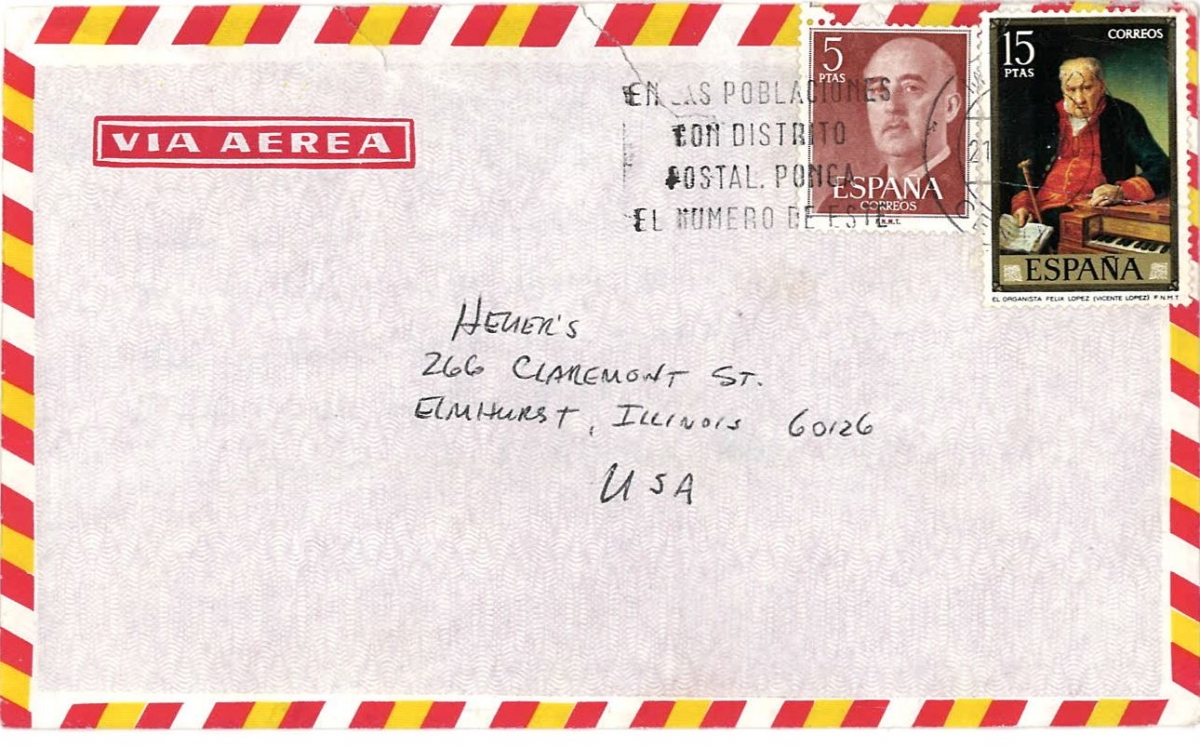 VIA AEREA
EN LAS POBLACIONES
CON DISTRITO
POSTAL. PONGA
EL NUMERO DE ESTE
5
PTAS
ESPAÑA
CORREOS
F.N.M.T.
21
15
PTAS
CORREOS
ESPAÑA
EL ORGANISTA FELIX LOPEZ (VICENTE LOPEZ) F.N.M.T.
HEUER'S
266 CLAREMONT ST.
ELMHURST, ILLINOIS 60126
USA